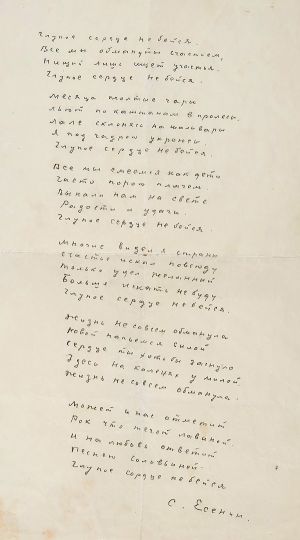 Глупое сердце не бейся.
Все мы обмануты счастьем,
Нищий лишь ищет участья.
Глупое сердце не бейся.
Месяца желтые чары
Льют по каштанам в пролесь.
Лале склонясь на шальвары
Я под чадрою укроюсь.
Глупое сердце не бейся.
Все мы смеемся как дети
Часто порою плачем.
Выпали нам на свете
Радости и удачи.
Глупое сердце не бейся.
Многие видел я страны
Счастья искал повсюду
Только удел желанный
Больше искать не буду
Глупое сердце не бейся.
Жизнь не совсем обманула
Новой напьемся силой
Сердце ты хоть бы заснуло
Здесь на коленях у милой
Жизнь не совсем обманула.
Может и нас отметит
Рок что течет лавиной.
И на любовь ответит
Песнею соловьиной.
Глупое сердце не бейся
С. Есенин.